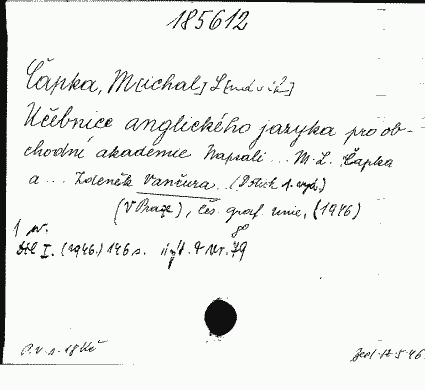 185612
Čapka, M[ichal] L[udvík]
Učebnice anglického jazyka pro ob-
chodní akademie Napsali ... M. L. Čapka
a ... Zdeněk Vančura. (Dotisk 1. vyd.)
(V Praze), Čes. graf. unie, (1946)
8°
1 sv.
Díl I. (1946.) 146 s.
P. v. n. 18 Kč